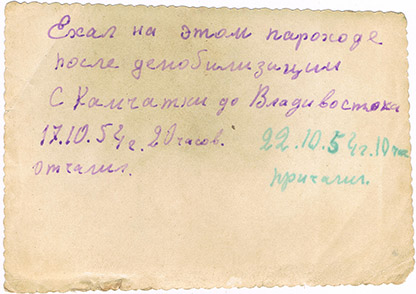 Ехал на этом пароходе
после демобилизации
С Камчатки до Владивостока
17.10.54г. 20 часов. 22.10.54г. 10 час
отчалил. причалил.